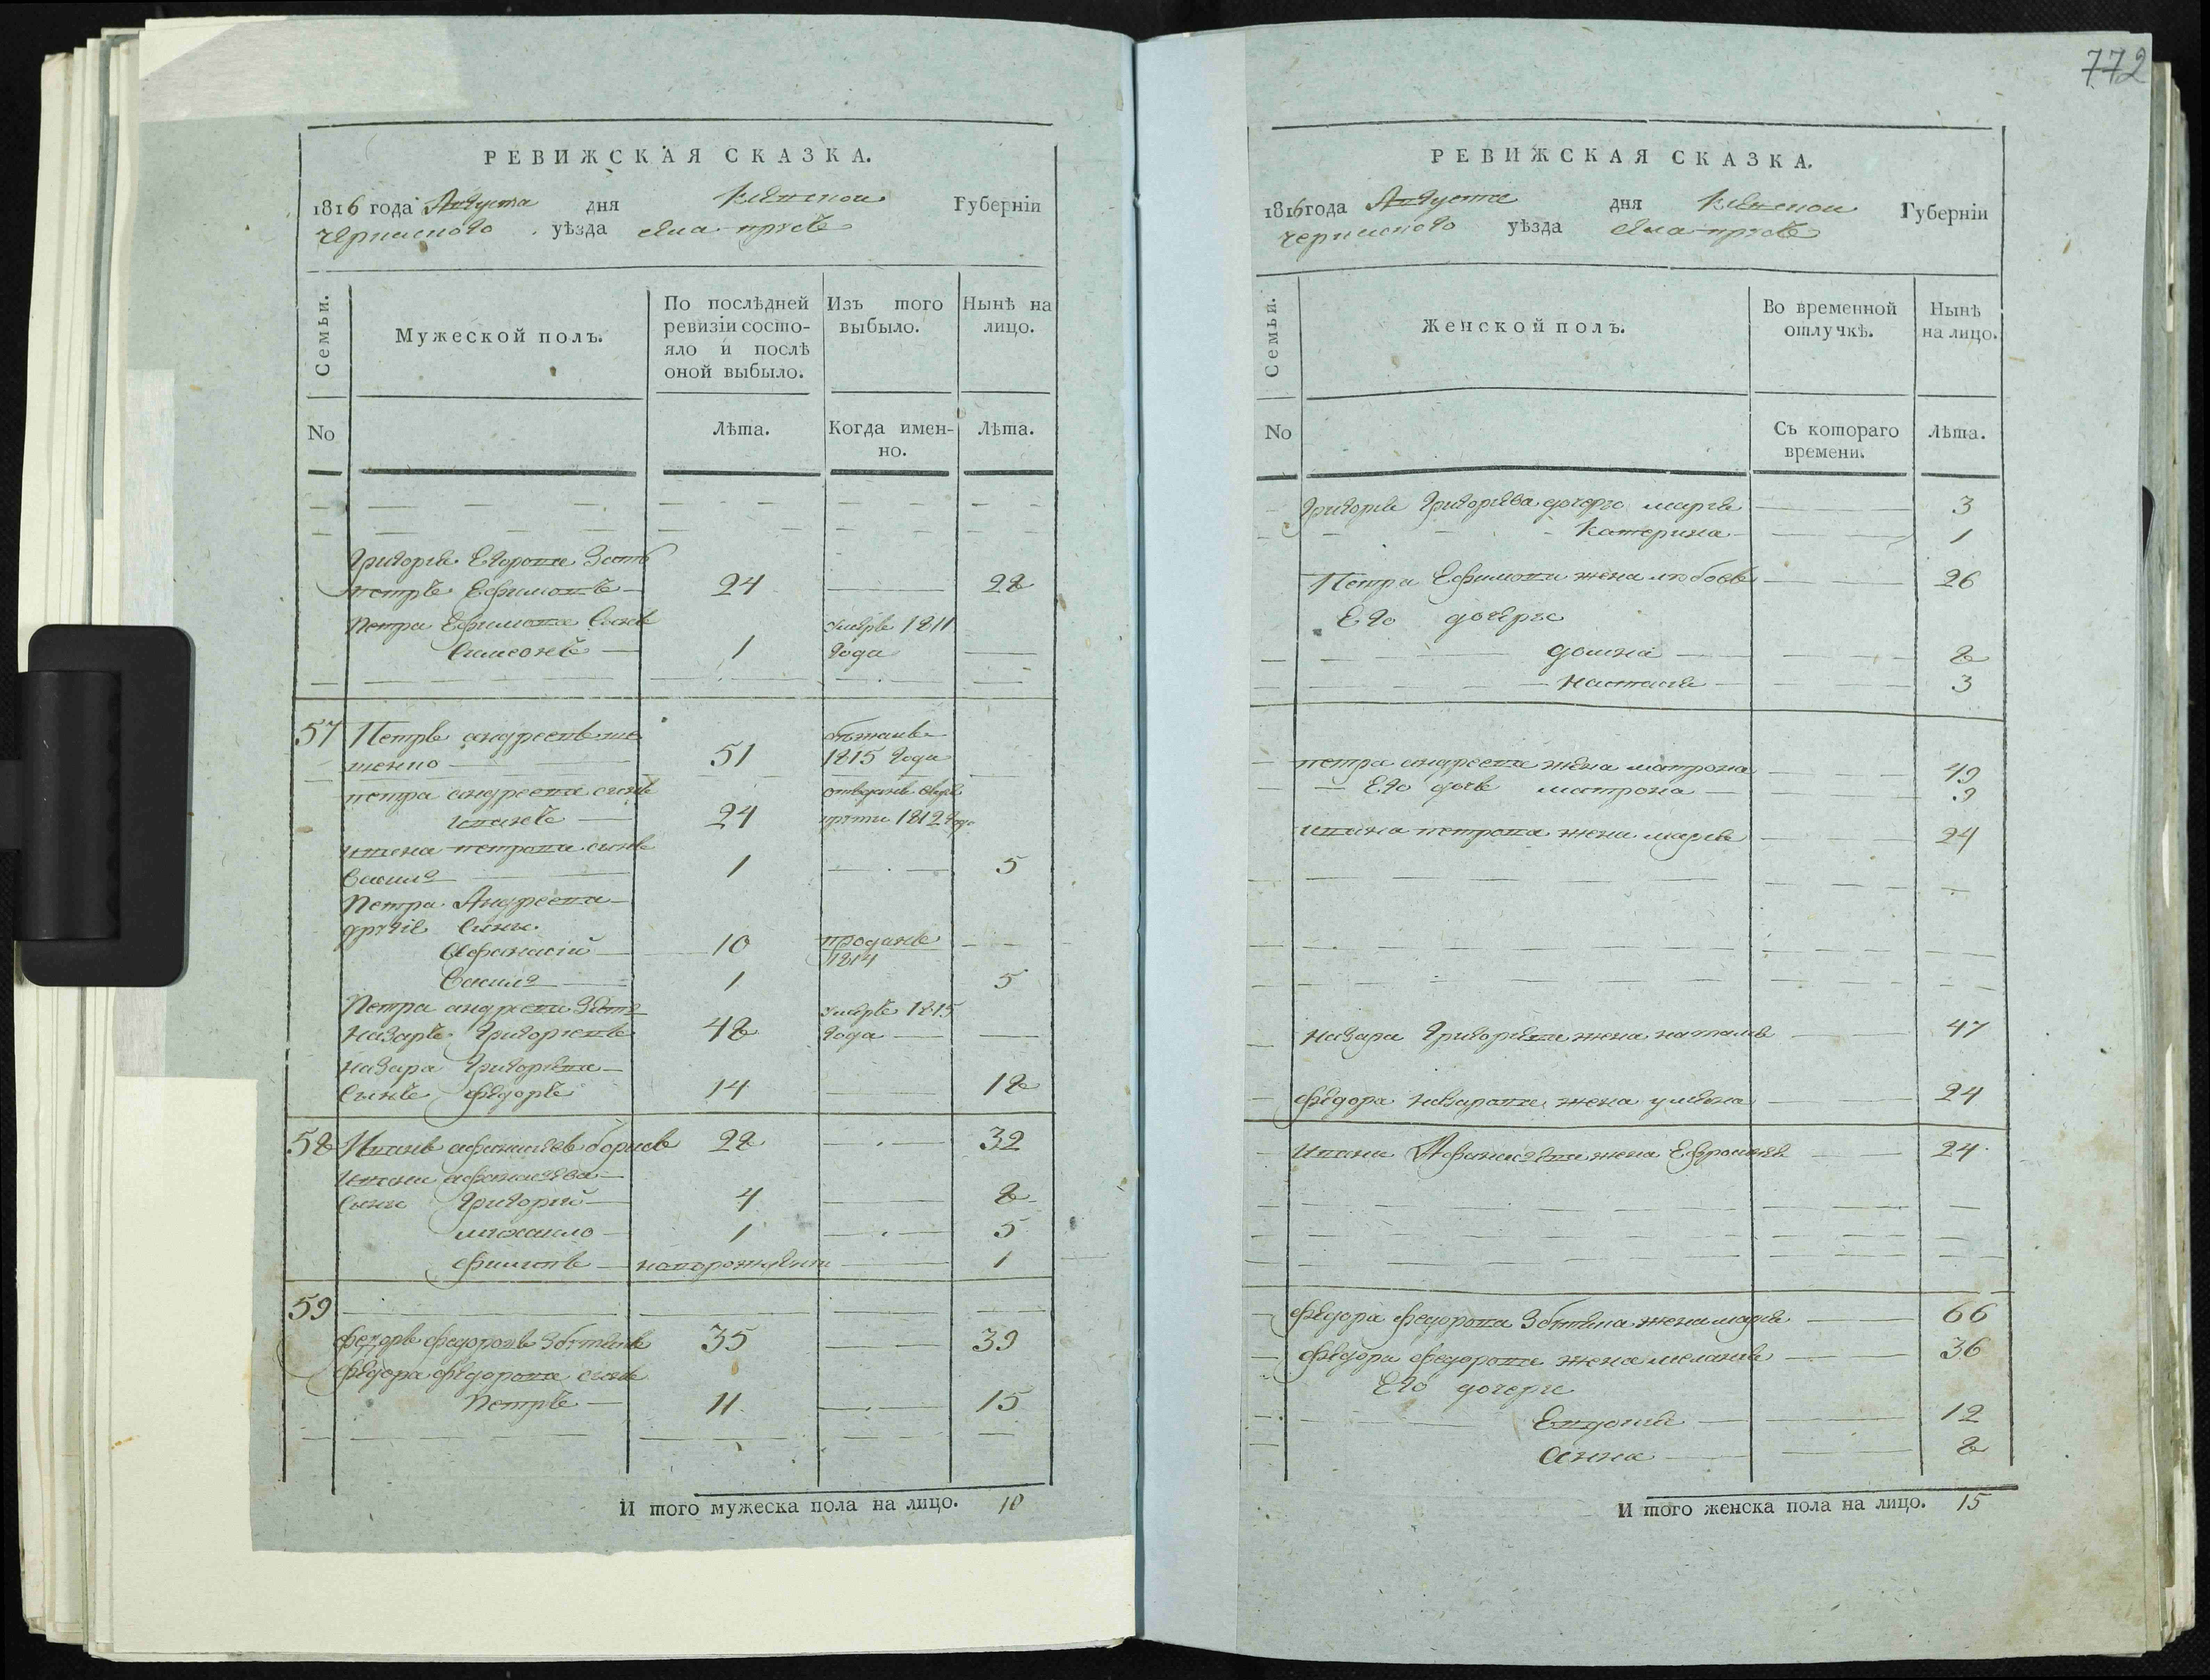 772
РЕВИЖСКАЯ СКАЗКА.
1816 года Августа дня Киевской Губерніи
Черкаского уѣзда села
Семьи.
Мужеской полъ.
По послѣдней ревизіи состо-
яло и послѣ
оной выбыло.
Изъ того
выбыло.
Нынѣ на
лицо.
No
Лѣта.
Когда имен-
но.
Лѣта.
Григорія Зять
петръ Ефимовъ 24 28
Петра Ефимова Сынъ умеръ 1811
Симеонъ 1 года
57 Петръ андреевъ
51 1815 года
петра андреева сынъ
иванъ 24 1812 года
ивана петрова сынъ
Василь 1 5
Петра Андреева
другіе Сыны
Афанасій 10 проданъ 1814
Василь 1 5
Петра андреева Зять умеръ 1815
Назаръ Григориевъ 48 года
назара Григорьева
Сынъ Федоръ 14 18
58 Иванъ афанасиевъ 28 32
Ивана афанасиева
Сыны Григорий 4 8
михаило 1 5
филипъ новорожденъ 1
59
федоръ федоровъ 35 39
Федора федорова сынъ
Петръ 11 15
И того мужеска пола на лицо. 10
РЕВИЖСКАЯ СКАЗКА.
1816 года Августа дня Киевской Губерніи
черкаского уѣзда села
Семьи.
Женской полъ.
Во временной
отлучкѣ.
Нынѣ
на лицо.
No
Съ котораго
времени.
Лѣта.
Григория Григорьева дочери марія 3
Катерина 1
Петра Ефимова жена любовь 26
Его дочери
домна 8
настасия 3
петра андреева жена матрона 49
Его дочь матрона 9
ивана петрова жена марія 24
назара Григорьева жена наталия 47
федора назарова жена улияна 24
ивана Афанасиева жена Ефросинія 24
федора федорова жена марія 66
федора федорова жена меланія 36
Его дочери
Евдокия 12
Анна 8
И того женска пола на лицо. 15